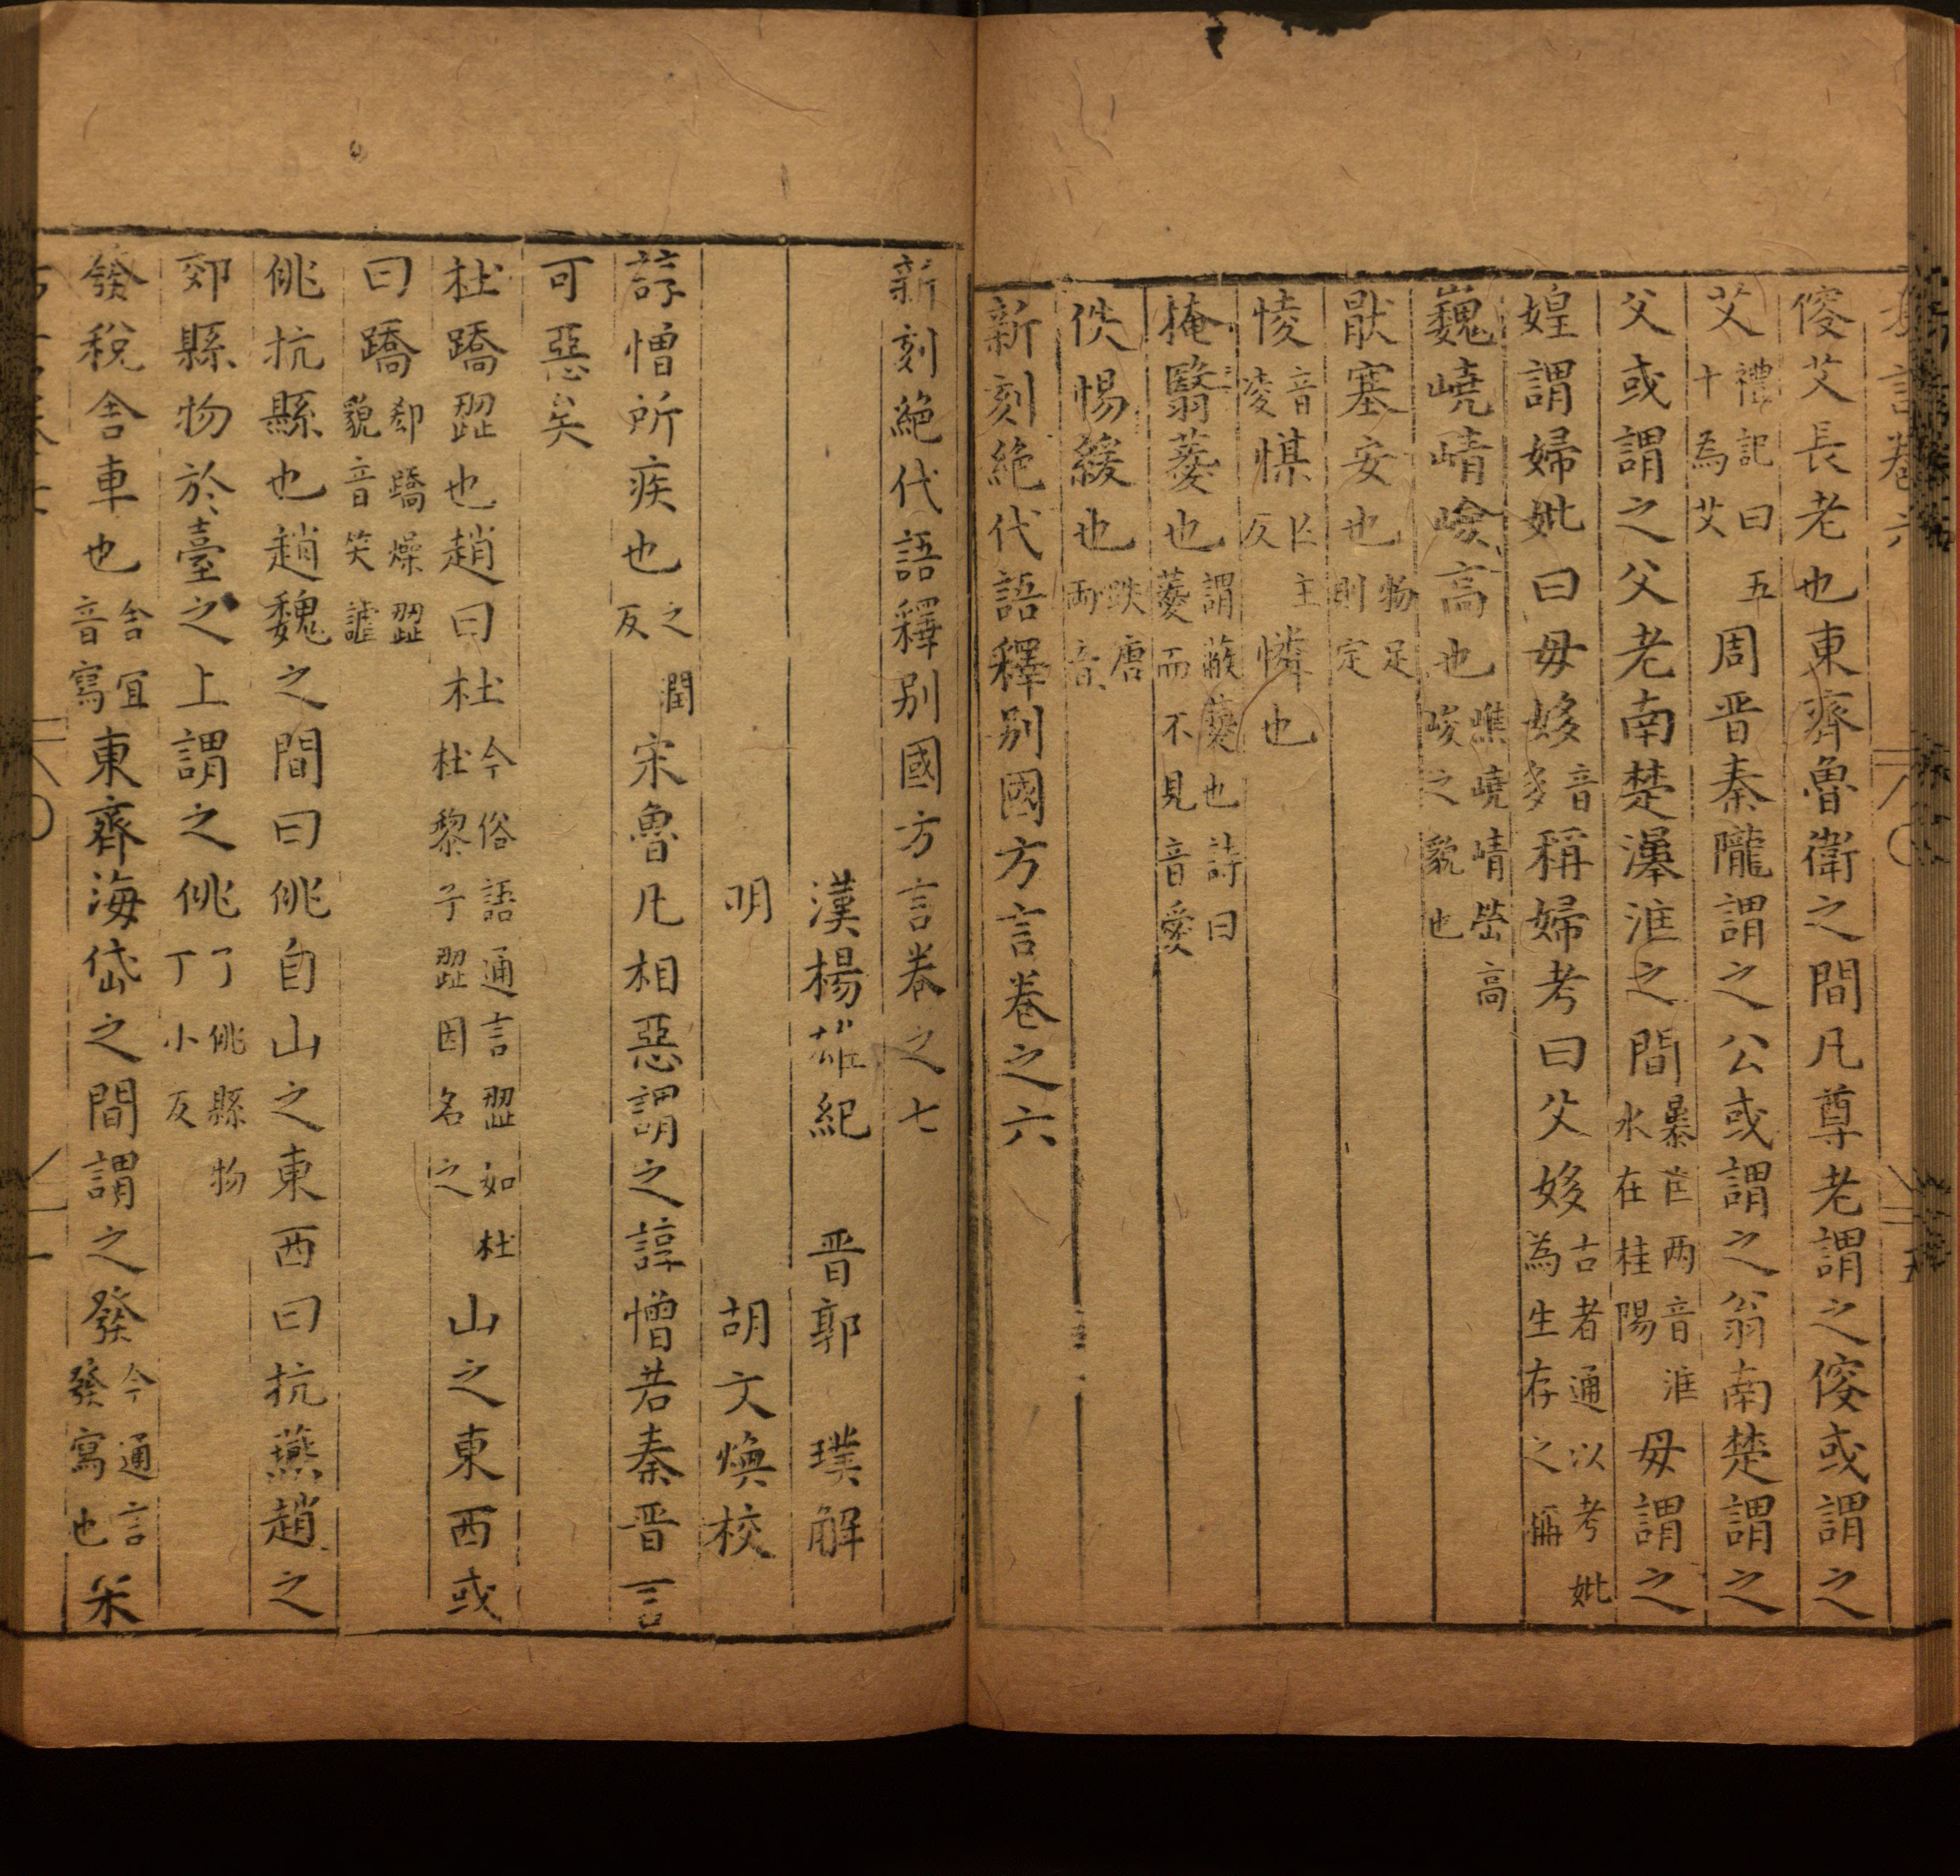 傁艾長老也東齊魯衛之間凡尊老謂之傁或謂之
艾禮記曰五十為艾周晋秦隴謂之公或謂之翁南楚謂之
父或謂之父老南楚瀑洭之間暴匡两音洭水在桂陽母謂之
媓謂婦妣曰母姼音多稱婦考曰父姼古者通以考妣為生存之稱
巍嶢崝嶮高也嶕嶢崝嵤高峻之貌也
猒塞安也物足則定
㥄音凌㥕亡主反憐也
掩翳薆也謂蔽薆也詩曰薆而不見音愛
佚惕緩也跌唐両音
新刻絶代語釋别國方言卷之六
新刻絶代語釋别國方言卷之七
漢楊雄紀 晋郭璞解
明 胡文煥校
諄憎所疾也之潤反宋魯凡相惡謂之諄憎若秦晋言
可惡矣
杜蹻歰也趙曰杜今俗語通言歰如杜杜棃子歰因名之山之東西或
曰蹻郄蹻燥歰貌音笑謔
佻抗縣也趙魏之間曰佻自山之東西曰抗燕趙之
郊縣物於臺之上謂之佻了佻縣物丁小反
發稅舍車也舍宜音寫東齊海岱之間謂之發今通言發寫也宋